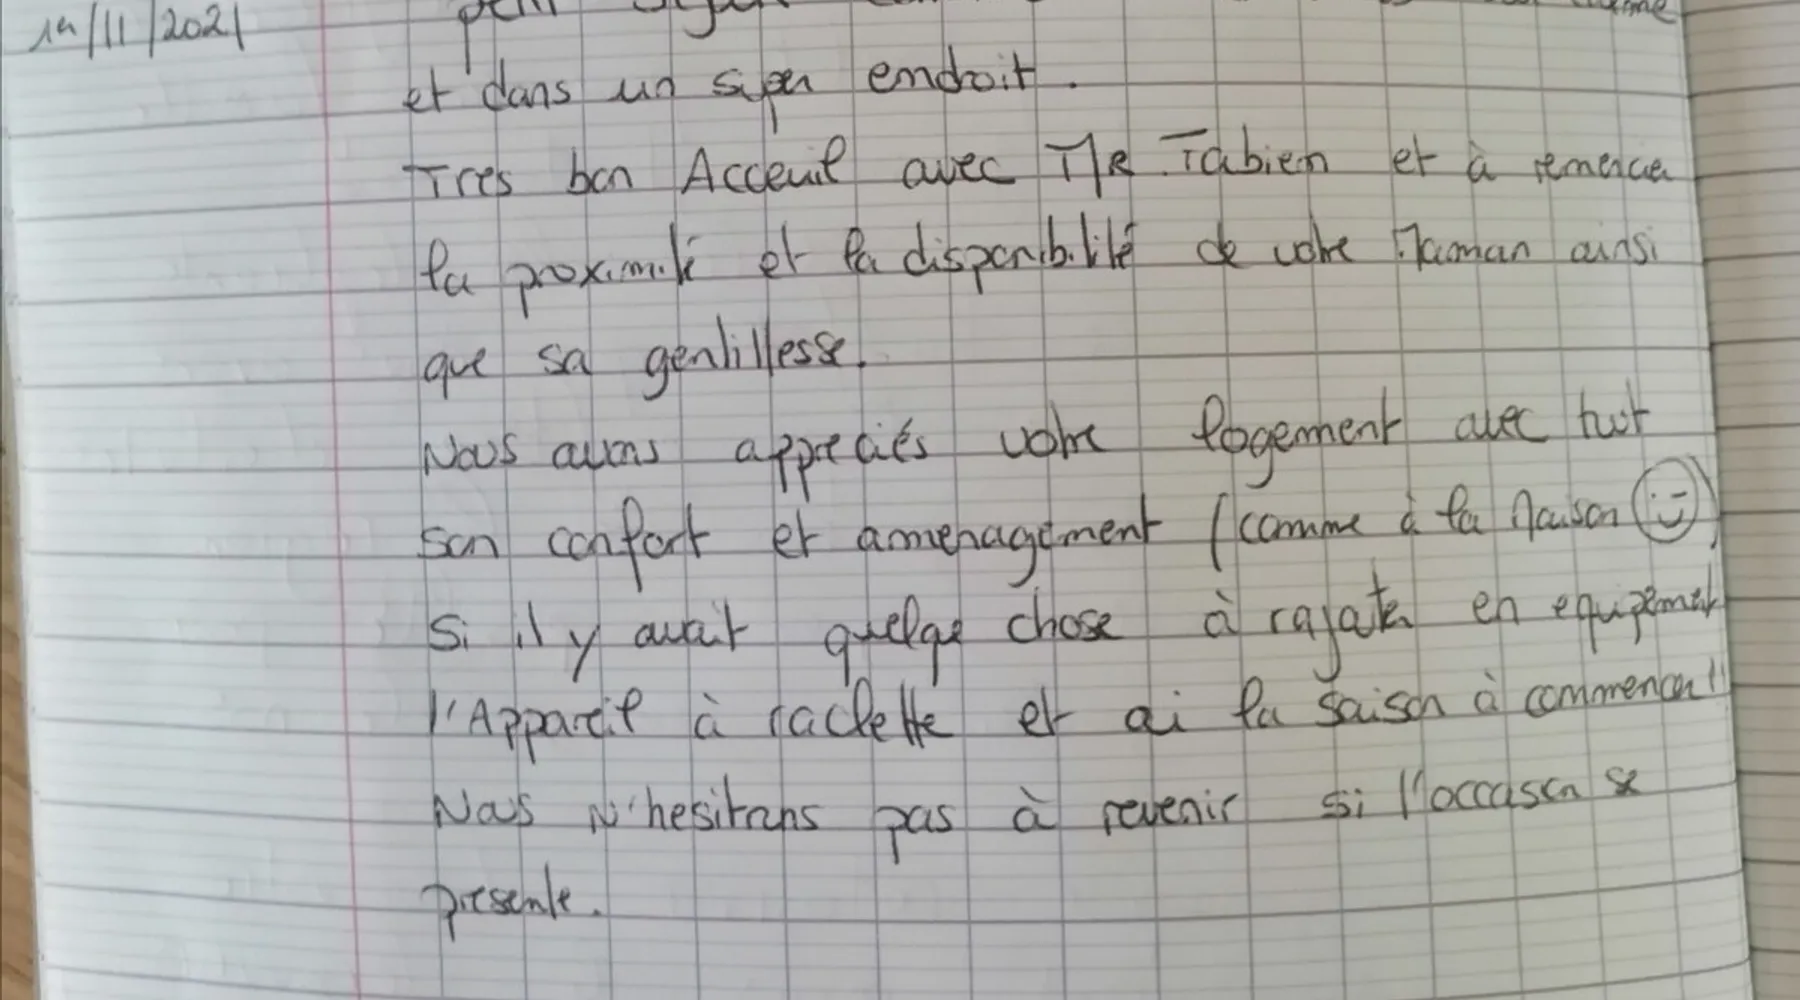 14/11/2021
petit séjour
et dans un super endroit.
Tres bon Acceuil avec MR. Fabien et à remercier
la proximité et la disponibilité de votre Maman ainsi
que sa gentillesse.
Nous avons appreciés votre logement avec tout
son confort et amenagement (comme à la Maison :-))
Si il y avait quelque chose à rajouter en equipement
l'Appareil à raclette et oui la saison à commencer!!
Nous N'hesitrons pas à revenir si l'occasion se
presente.